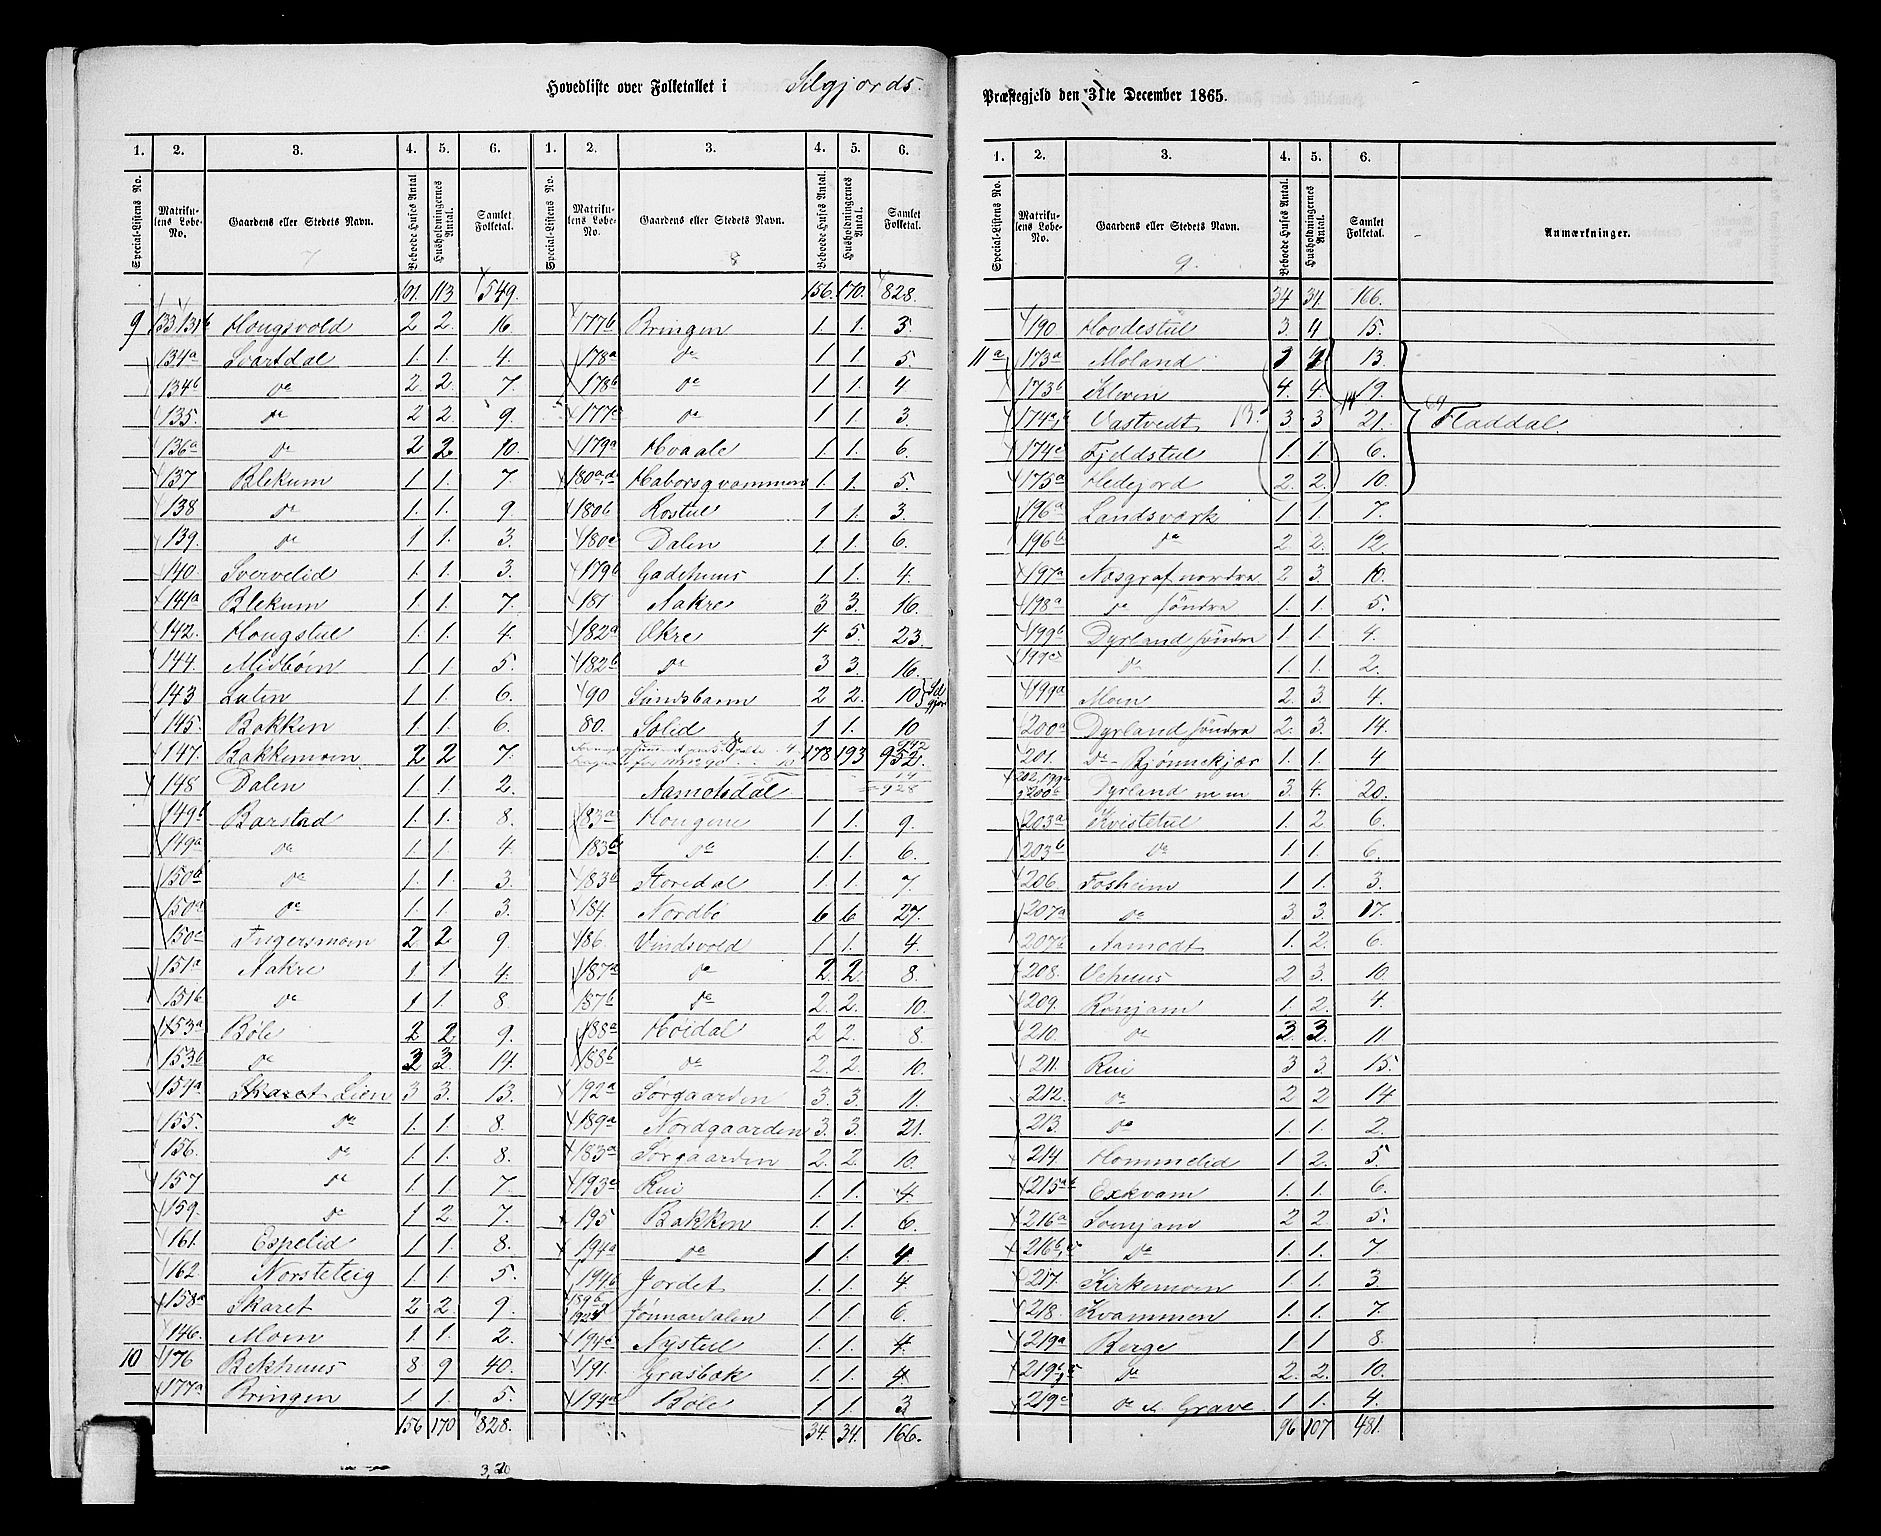 Hovedliste over Folketallet i Silgjords
Præstegjeld den 31te December 1865.
1. 2. 3. 4. 5. 6. 1. 2. 3. 4. 5. 6.
Special-Listens No. Matrikulens Løbe-No. Gaardens eller Stedets Navn. Beboede Huses Antal. Husholdningernes Antal. Samlet Folketal. Special-Listens No. Matrikulens Løbe-No. Gaardens eller Stedets Navn. Beboede Huses Antal. Husholdningernes Antal. Samlet Folketal.
7 8
101. 113 549.
9 133 131b Hougsvold 2 2. 16
134a Svartdal 1. 1. 4.
134b do 2. 2. 7.
135. do 2 2. 9.
136a do 2 2 10.
137 Blekum 1. 1. 7.
138 do 1. 1. 9.
139. do 1 1. 3.
140. Svervelid 1. 1. 3.
141a Blekum 1. 1. 7.
142. Hougstul 1. 1. 4.
144. Midbøin 1 1. 5.
143 Luten 1. 1. 6.
145. Bakken 1. 1. 6.
147. Bakkemoen 2 2 7.
148 Dalen 1. 1. 2.
149b Barstad 1. 1. 8.
149a do 1. 1. 4.
150b do 1. 1. 3.
150a do 1. 1 3.
150c Ingersmoen 2 2 9.
151a Aakre 1 1 4.
151b do 1 1. 8.
153a Bøle 2 2 9.
153b do 3 3. 14.
154a Skaret Lien 3 3. 13.
155. do 1. 1. 8.
156. do 1. 1. 8.
157 do 1. 1. 7.
159. do 1 2. 7.
161. Espelid 1. 1. 8.
162. Norsteteig 1. 1. 5.
158a Skaret 2 2. 9.
146. Moen 1. 1. 2.
10 176 Bekhuus 8 9 40.
177a Bringen 1. 1. 5.
156 170 828.
156. 170. 828.
177b Bringen 1. 1. 3.
178a do 1 1. 5
178b do 1 1. 4
177c do 1 1. 3
179a Hvaale 1. 1. 6.
180a,d Haborsqvammen 1. 1. 5.
180b Rostul 1 1. 3.
180c Dalen 1 1. 6.
179b Gadehuus 1 1. 4.
181 Aakre 3 3. 16.
182a Økre 4 5. 23.
182b do 3 3. 16.
90 Sundsbarm 2 2. 10
80. Solid 1. 1. 10
178 193 952.
942
14
928
Aamotsdal
183a Hougene 1 1. 9.
183b do 1. 1. 6.
183b Storedal 1. 1. 7.
184. Nordbø 6 6. 27.
186. Vindsvold 1 1. 4.
187a do 2. 2. 8.
187b do 2. 2. 10.
188a Høidal 2 2. 8
188b do 2. 2. 10.
192a Sørgaarden 3. 3. 11.
189a Nordgaarden 3. 3. 21.
183a Sørgaarden 2. 2. 10.
193c Rui 1. 1. 4.
195 Bakken 1. 1. 6.
194a do 1 1. 4
194b Jordet 1. 1. 4.
Jonnardalen 1 1. 6.
194c Nystul 1. 1. 4.
191. Grasbæk 1. 1. 4.
194d Bøle 1. 1. 3
34. 34. 166.
1. 2. 3. 4. 5. 6.
Special-Listens No. Matrikulens Løbe-No. Gaardens eller Stedets Navn. Beboede Huses Antal. Husholdningernes Antal. Samlet Folketal. Anmærkninger.
9.
34 34. 166.
190 Hovdestul 3. 4 15.
11a 173a Moland 3 4 13.
173b Kleven 4. 4. 19.
174a,b Vastvedt 13. 3 3 14 21. 64 Fladdal
174c Fjeldstul 1. 1. 6.
175a Hedejord 2. 2. 10.
196a Landsværk 1 1. 7.
196b do 2. 2. 12.
197a Næsgraf nordre 2 3. 10.
198a do søndre 1. 1. 5.
199b Dyrland søndre 1. 1. 4.
199c do 1 1. 2.
199a Moen 2. 3. 4.
200a Dyrland søndre 2. 3. 14.
201. do Bjønnekjær 1. 1. 4
Dyrland m m 3. 4. 20.
203a Kvistetul 1. 2 6.
203b do 1. 1. 6.
206. Fosheim 1 1. 3.
207a do 3 3. 17.
207b Aamodt 1. 2. 6.
208. Vehuus 2 3. 10
209. Rønjam 1 2. 4.
210. do 3. 3. 11.
211. Rui 3 3. 15.
212. do 2 2 14
213. do 1 1. 2.
214. Hommelid 1 2. 5.
215a b Exkvam 1. 1. 6.
216a Svenjam 2 2. 5.
216b,c do 1. 1. 7
217. Kirkemoen 1. 1. 3
218. Kvammen 1. 1. 7.
219a Berge 1 1. 8.
219b do 2. 2. 10.
219c do Grave 1. 1. 4.
96 107 481.
3,20